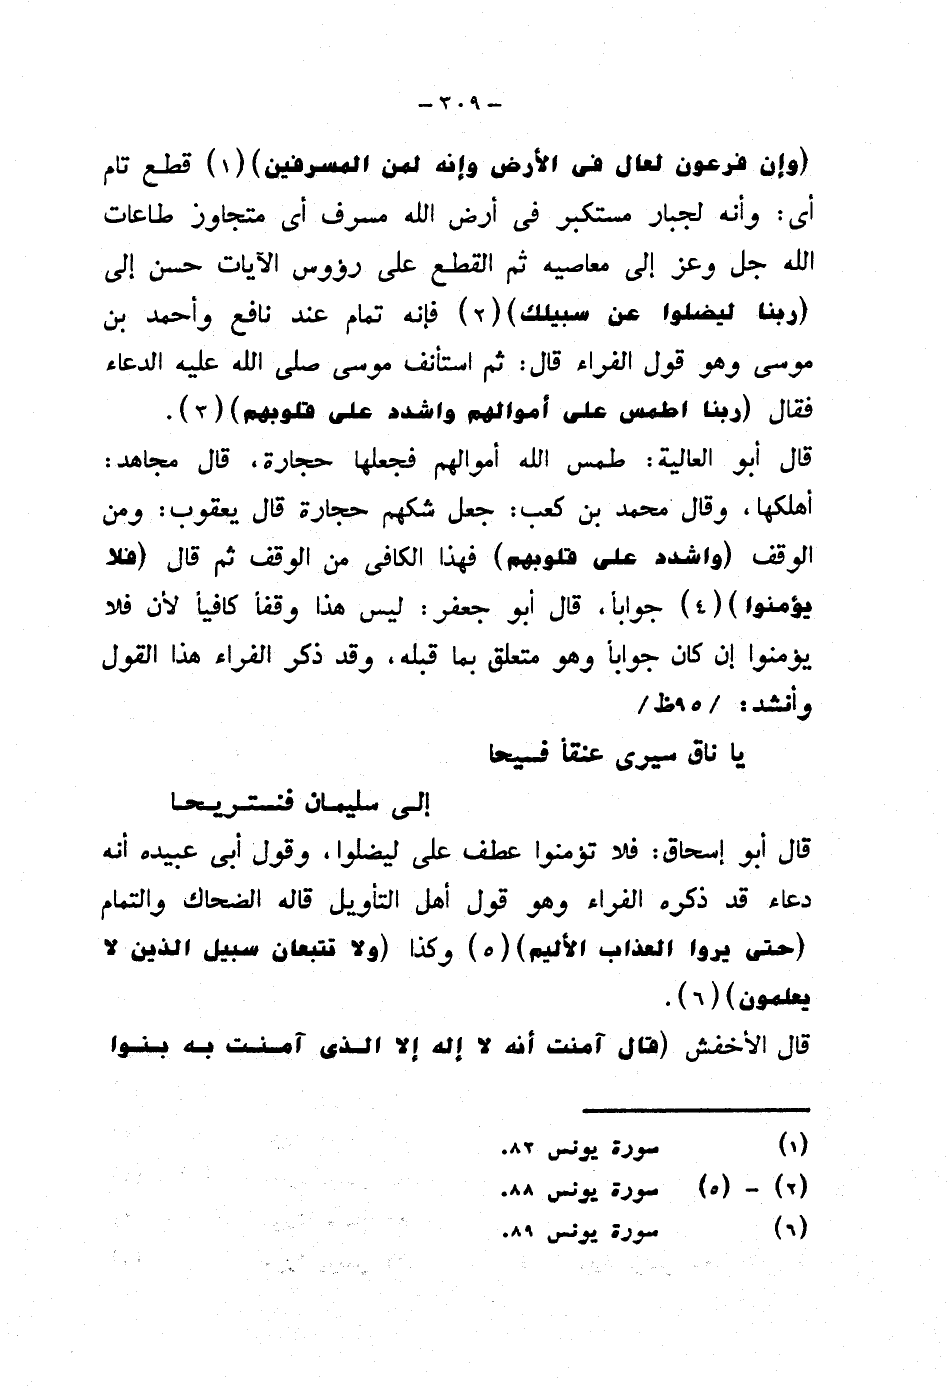 - ٣٠٩ -
(وإن فرعون لعال فى الأرض وإنه لمن المسرفين)(١) قطع تام
أى: وأنه لجبار مستكبر فى أرض الله مسرف أى متجاوز طاعات
الله جل وعز إلى معاصيه ثم القطع على رؤوس الآيات حسن إلى
(ربنا ليضلوا عن سبيلك)(٢) فإنه تمام عند نافع وأحمد بن
موسى وهو قول الفراء قال: ثم استأنف موسى صلى الله عليه الدعاء
فقال (ربنا اطمس على أموالهم واشدد على قلوبهم)(٣).
قال أبو العالية: طمس الله أموالهم فجعلها حجارة، قال مجاهد:
أهلكها، وقال محمد بن كعب: جعل شكهم حجارة قال يعقوب: ومن
الوقف (واشدد على قلوبهم) فهذا الكافى من الوقف ثم قال (فلا
يؤمنوا)(٤) جواباً، قال أبو جعفر: ليس هذا وقفاً كافياً لأن فلا
يؤمنوا إن كان جواباً وهو متعلق بما قبله، وقد ذكر الفراء هذا القول
وأنشد: /٩٥ظ/
يا ناق سيرى عنقاً فسيحا
إلى سليمان فنستريحا
قال أبو إسحاق: فلا تؤمنوا عطف على ليضلوا، وقول أبى عبيده أنه
دعاء قد ذكره الفراء وهو قول أهل التأويل قاله الضحاك والتمام
(حتى يروا العذاب الأليم)(٥) وكذا (ولا تتبعان سبيل الذين لا
يعلمون)(٦).
قال الأخفش (قال آمنت أنه لا إله إلا الذى آمنت به بنوا
(١) سورة يونس ٨٣.
(٢) - (٥) سورة يونس ٨٨.
(٦) سورة يونس ٨٩.